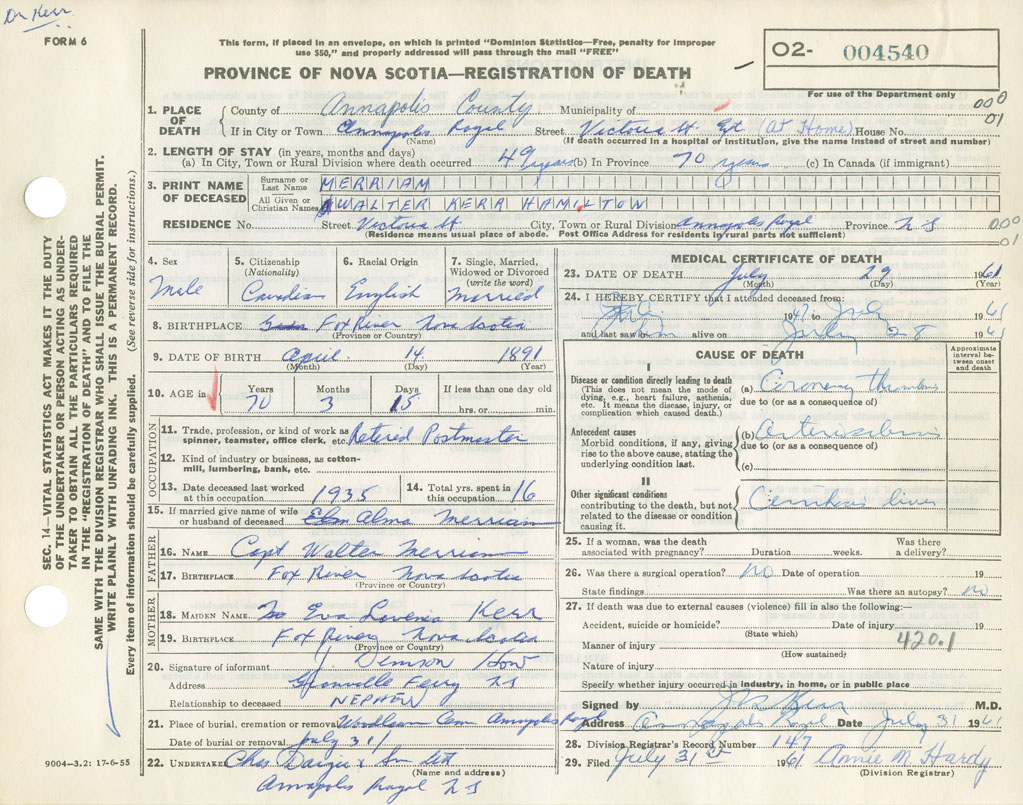 Dr Kerr
FORM 6
This form, if placed in an envelope, on which is printed "Dominion Statistics—Free, penalty for improper
use $50," and properly addressed will pass through the mail "FREE"
PROVINCE OF NOVA SCOTIA—REGISTRATION OF DEATH
02- 004540
For use of the Department only
000
01
1. PLACE OF DEATH County of Annapolis County Municipality of
If in City or Town Annapolis Royal Street Victoria St Ext (At Home) House No.
(Name) (If death occurred in a hospital or institution, give the name instead of street and number)
2. LENGTH OF STAY (in years, months and days)
(a) In City, Town or Rural Division where death occurred 49 years (b) In Province 70 years (c) In Canada (if immigrant)
3. PRINT NAME OF DECEASED Surname or Last Name MERRIAM
All Given or Christian Names WALTER KERR HAMILTON
RESIDENCE No. Street Victoria St City, Town or Rural Division Annapolis Royal Province N S
(Residence means usual place of abode. Post Office Address for residents in rural parts not sufficient)
000
01
4. Sex Male
5. Citizenship (Nationality) Canadian
6. Racial Origin English
7. Single, Married, Widowed or Divorced (write the word) Married
8. BIRTHPLACE Fox River Nova Scotia
(Province or Country)
9. DATE OF BIRTH April 14 1891
(Month) (Day) (Year)
10. AGE in Years 70 Months 3 Days 15 If less than one day old hrs. or min.
OCCUPATION
11. Trade, profession, or kind of work as spinner, teamster, office clerk, etc. Retired Postmaster
12. Kind of industry or business, as cotton-mill, lumbering, bank, etc.
13. Date deceased last worked at this occupation 1935
14. Total yrs. spent in this occupation 16
15. If married give name of wife or husband of deceased Alma Merriam
FATHER
16. NAME Capt Walter Merriam
17. BIRTHPLACE Fox River Nova Scotia
(Province or Country)
MOTHER
18. MAIDEN NAME Eva Lovenia Kerr
19. BIRTHPLACE Fox River Nova Scotia
(Province or Country)
20. Signature of informant J. Denison How
Address Granville Ferry N S
Relationship to deceased NEPHEW
21. Place of burial, cremation or removal Woodlawn Cem Annapolis Royal
Date of burial or removal July 31
22. UNDERTAKER Chas & Son Ltd
(Name and address)
Annapolis Royal N S
MEDICAL CERTIFICATE OF DEATH
23. DATE OF DEATH July 29 1961
(Month) (Day) (Year)
24. I HEREBY CERTIFY that I attended deceased from:
1947 to July 1961
and last saw him alive on July 28 1961
CAUSE OF DEATH
Approximate interval between onset and death
I
Disease or condition directly leading to death
(This does not mean the mode of dying, e.g., heart failure, asthenia, etc. It means the disease, injury, or complication which caused death.)
(a) Coronary Thrombosis
due to (or as a consequence of)
Antecedent causes
Morbid conditions, if any, giving rise to the above cause, stating the underlying condition last.
(b) Arteriosclerosis
due to (or as a consequence of)
(c)
II
Other significant conditions
contributing to the death, but not related to the disease or condition causing it.
Cirrhosis liver
25. If a woman, was the death associated with pregnancy? Duration weeks. Was there a delivery?
26. Was there a surgical operation? No Date of operation 19
State findings Was there an autopsy? No
27. If death was due to external causes (violence) fill in also the following:—
Accident, suicide or homicide? Date of injury 19
(State which)
420.1
Manner of injury
(How sustained)
Nature of injury
Specify whether injury occurred in industry, in home, or in public place
Signed by Kerr M.D.
Address Annapolis Royal Date July 31 1961
28. Division Registrar's Record Number 147
29. Filed July 31st 1961 Annie M. Hardy
(Division Registrar)
SEC. 14—VITAL STATISTICS ACT MAKES IT THE DUTY
OF THE UNDERTAKER OR PERSON ACTING AS UNDER-
TAKER TO OBTAIN ALL THE PARTICULARS REQUIRED
IN THE "REGISTRATION OF DEATH" AND TO FILE THE
SAME WITH THE DIVISION REGISTRAR WHO SHALL ISSUE THE BURIAL PERMIT.
WRITE PLAINLY WITH UNFADING INK. THIS IS A PERMANENT RECORD.
Every item of information should be carefully supplied. (See reverse side for instructions.)
9004—3.2: 17-6-55